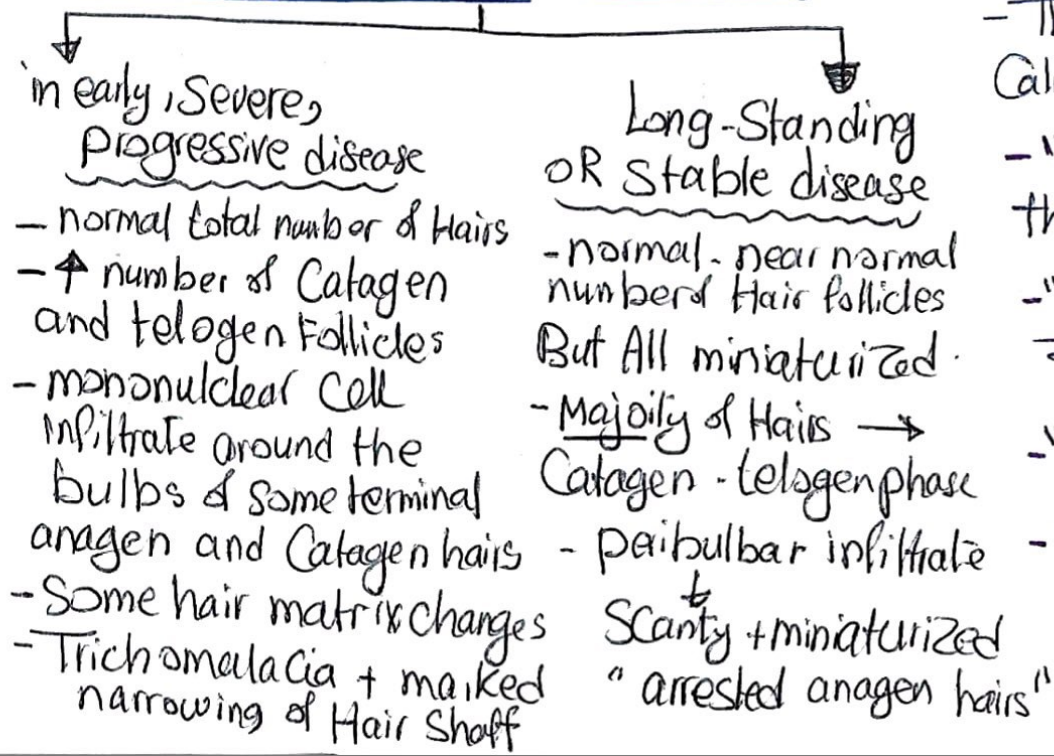 in early, Severe,
progressive disease
- normal total number of Hairs
- ↑ number of Catagen
and telogen Follicles
- mononulclear Cell
infiltrate around the
bulbs of some terminal
anagen and Catagen hairs
- Some hair matrix changes
- Trichomalacia + marked
narrowing of Hair Shaff
Long-Standing
OR Stable disease
- normal - near normal
number of Hair follicles
But All miniaturized.
- Majoily of Hairs →
Catagen - telogen phase
- peribulbar infiltrate
Scanty + miniaturized
"arrested anagen hairs"
Cal
th